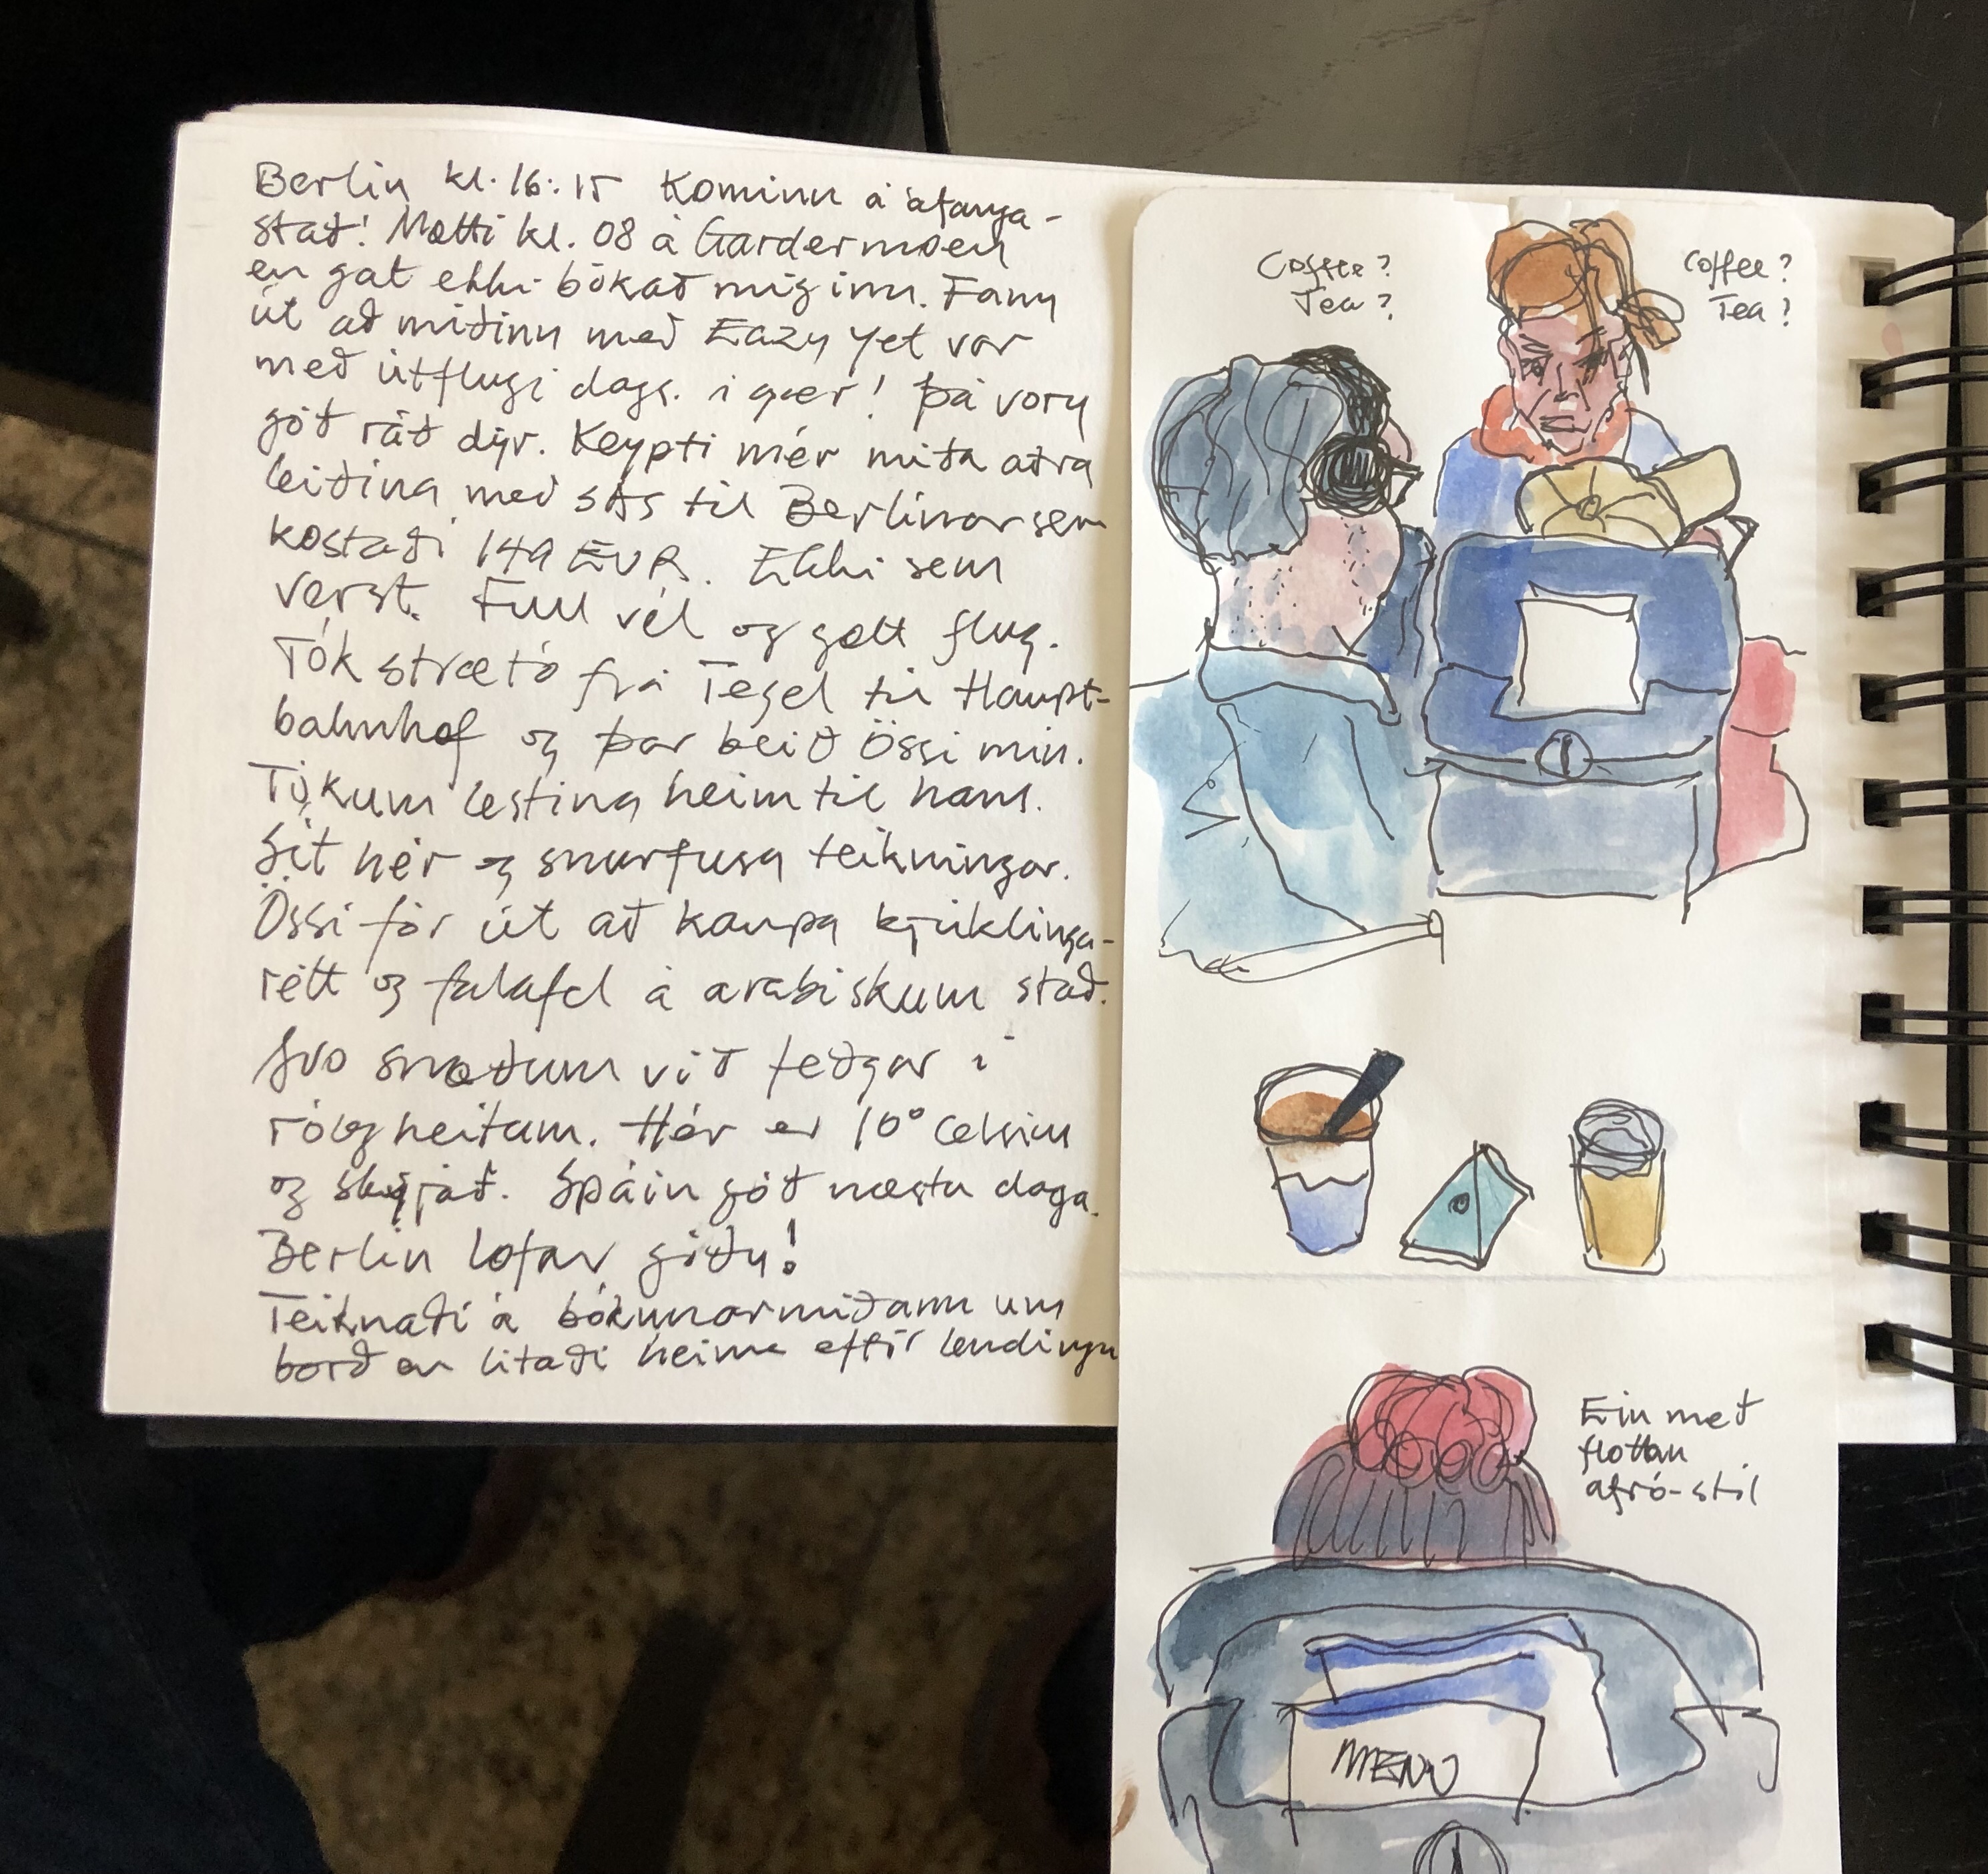 Berlin kl. 16:15 Kominn á áfanga-
stað! Mætti kl. 08 á Gardermoen
en gat ekki bókað mig inn. Fann
út að miðinn með Eazy Jet var
með útflugi dags. í gær! Þá voru
góð ráð dýr. Keypti mér miða aðra
leiðina með SAS til Berlínar sem
kostaði 149 EUR. Ekki sem
verst. Full vél og gott flug.
Tók strætó frá Tegel til Haupt-
bahnhof og þar beið Össi min.
Tókum lestina heim til hans.
Sit hér og snurfusa teikningar.
Össi fór út að kaupa kjúklinga-
rétt og falafel á arabiskum stað.
Svo snæðum við feðgar í
rólegheitum. Hér er 10° Celsius
og skýjað. Spáin góð næstu daga.
Berlin lofar góðu!
Teiknaði á bókunarmiðann um
borð en litaði heima eftir lendingu
Coffee?
Tea?
Coffee?
Tea?
Ein með
flottan
afró-stíl
MENU